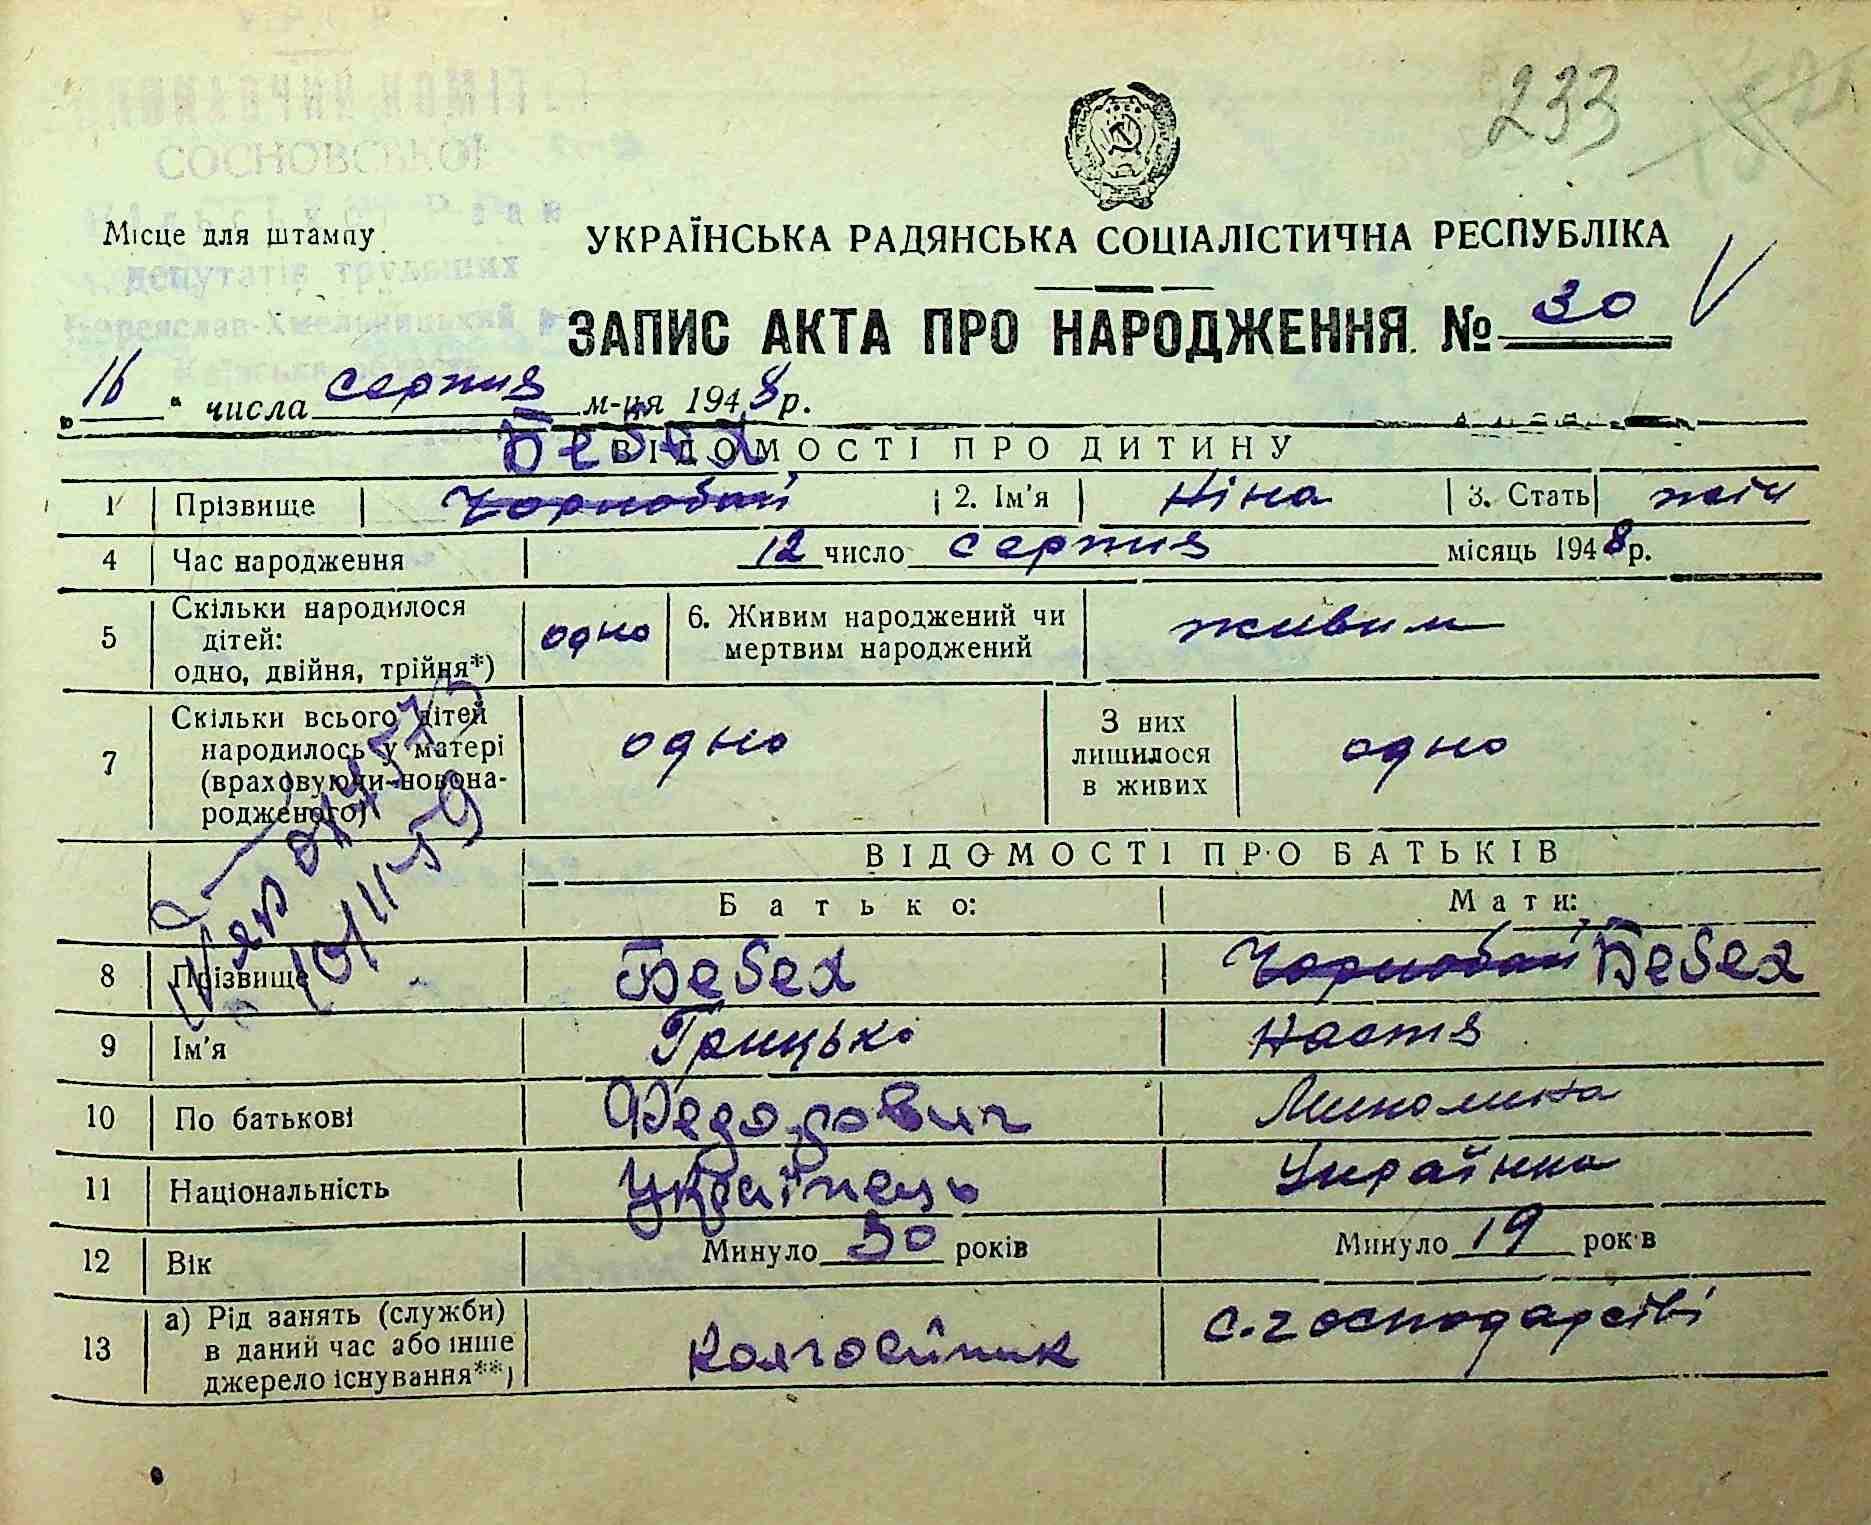 233
СОСНОВСЬКОЇ
Місце для штампу
депутатів трудящих
Переяслав-Хмельницький
УКРАЇНСЬКА РАДЯНСЬКА СОЦІАЛІСТИЧНА РЕСПУБЛІКА
ЗАПИС АКТА ПРО НАРОДЖЕННЯ. № 30 V
„ 16 “ числа серпня м-ця 1948 р.
Бебех
ВІДОМОСТІ ПРО ДИТИНУ
1 Прізвище Чорнобай 2. Ім'я Ніна 3. Стать жін
4 Час народження 12 число серпня місяць 1948 р.
5 Скільки народилося дітей: одно, двійня, трійня*) одно 6. Живим народжений чи мертвим народжений живим
7 Скільки всього дітей народилось у матері (враховуючи новонародженого) одно З них лишилося в живих одно
10/II 59
ВІДОМОСТІ ПРО БАТЬКІВ
Батько: Мати:
8 Прізвище Бебех Чорнобай Бебех
9 Ім'я Грицько Настя
10 По батькові Федорович
11 Національність Українець Українка
12 Вік Минуло 30 років Минуло 19 років
13 а) Рід занять (служби) в даний час або інше джерело існування**) Колгоспник с.господарстві